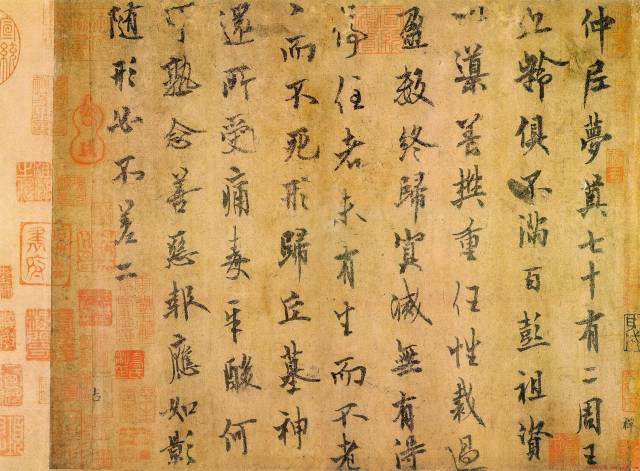 仲尼夢奠七十有二周王
九齡俱不滿百彭祖資
以導養樊重任性裁過
盈數終歸冥滅無有得
停住者未有生而不老
々而不死形歸丘墓神
還所受痛毒辛酸何
可熟念善惡報應如影
随形必不差二